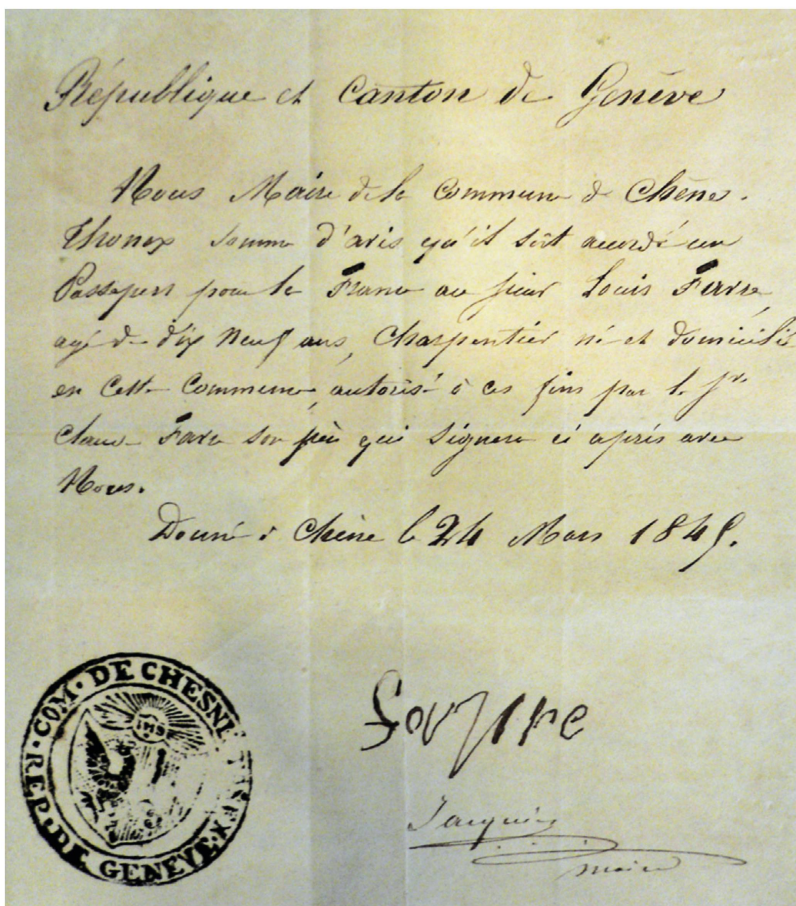 République et Canton de Genève
Nous Maire de la Commune de Chêne-
Thonex somme d'avis qu'il soit accordé un
Passeport pour la France au sieur Louis Favre,
agé de dix neuf ans, Charpentier né et domicilié
en cette Commune, autorisé à ces fins par le Sr
Claude Favre son père qui signera ci après avec
Nous.
Donné à Chêne le 24 Mars 1845.
REP. DE GENEVE. COM. DE CHESNE
IHS
maire